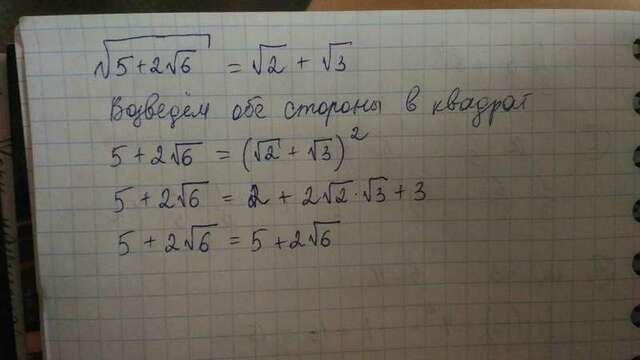 √(5+2√6) = √2 + √3
Возведём обе стороны в квадрат
5 + 2√6 = (√2 + √3)²
5 + 2√6 = 2 + 2√2·√3 + 3
5 + 2√6 = 5 + 2√6